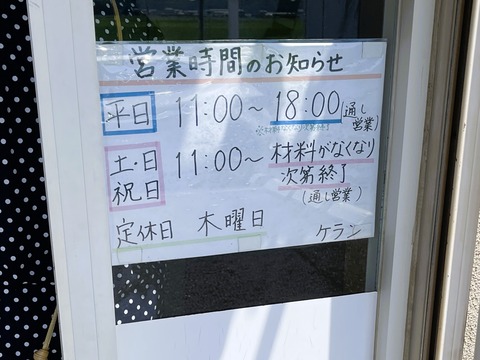 営業時間のお知らせ
平日 11:00〜18:00(通し営業)
※材料なくなり次第終了
土・日祝日 11:00〜材料がなくなり次第終了(通し営業)
定休日 木曜日
ケラン